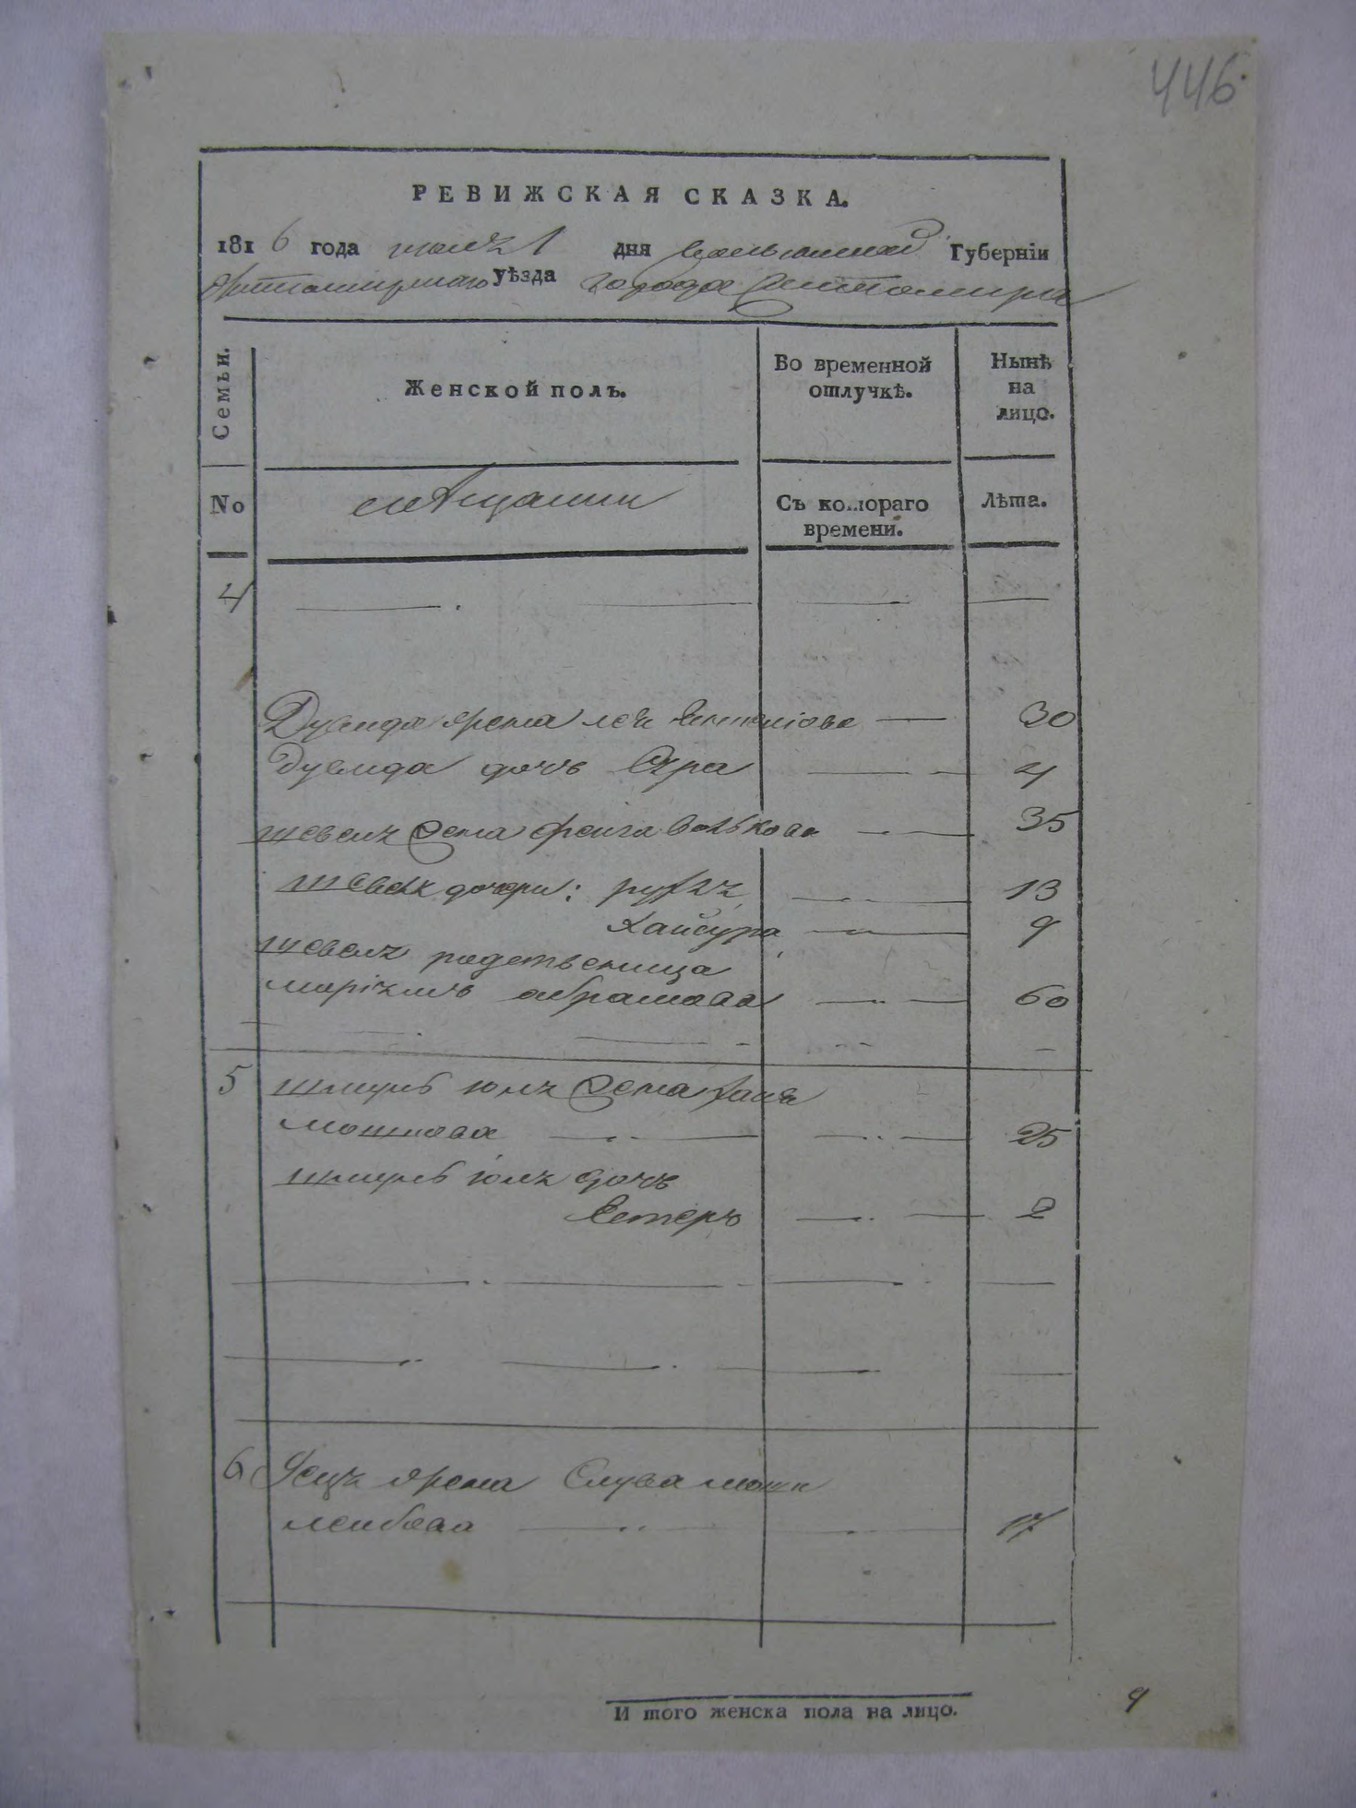 446.
РЕВИЖСКАЯ СКАЗКА.
1816 года июля 1 дня Волынской Губерніи
Житомирскаго уѣзда города Житомира
Семьи.
Женской полъ.
Во временной отлучкѣ.
Ныне на лицо.
No
мѣщанин
Съ котораго времени.
Лѣта.
4
Дувида жена 30
Дувида дочь Сура 4
шевелъ жена фейга волькова 35
шевелъ дочери: рухлъ 13
Хайсура 9
шевелъ родственица
абрамова 60
5 шмуль жена хаия
мошкова 25
шмуль дочь
Естеръ 2
6 жена Слува
лейбова 17
И того женска пола на лицо. 9